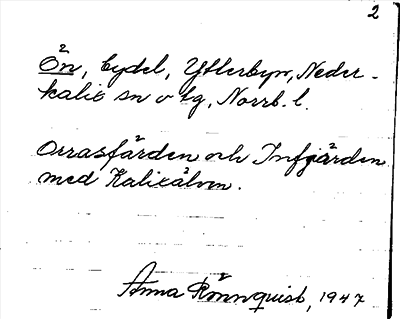 2
Ön, bydel, Ytterbyn, Neder-
kalix sn o tg, Norrb. l.
Orrasfärden och Infjärden
med Kalixälven.
Anna Rönnquist, 1947